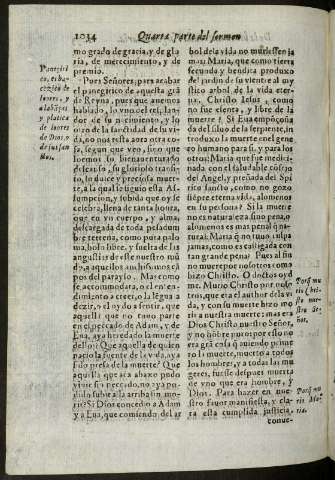 1034
Quarta parte del sermon
mo grado de gracia, y de glo
ria, de merecimiento, y de
premio.
Pues Señores, para acabar
el panegirico de aquesta gra
de Reyna, pues que auemos
hablado, y no en el resplan
dor de su nacimiento, y lo
oro de la sanctidad de su vi
da, no nos resta aora otra co-
sa, segun que veo, sino que
loemos su bienauenturado
descanso, su glorioso transito
to, su dulce y preciosa muer-
te, a la qual siguio esta As-
sumpcion, y subida que oy se
celebra, llena de tanta honra,
que en vn cuerpo, y alma,
descargada de toda pesadum
bre terrena, como pura palo
ma, bolo libre, y suelta de las
angustias de este nuestro mũ
do, a aquellos anchurosos cã
pos del parayso. Mas como
se accommodara, o el enten-
dimiento a creer, o la légua a
dezir, o el oydo a sentir, que
aquella que no tuuo parte
en el peccado de Adam, y de
Eua, aya heredado la muerte
dellos? Que aquella de quien
nacio la fuente de la vida, aya
sido presa de la muerte? Que
aquella que aca abaxo pudo
viuir sin peccado, no aya pu-
dido subir alla arriba sin mo-
rir? Si Dios concedio a Adam
y a Eua, que comiendo del ar
Panegiri
co, es ba-
lores, y
alabãças
y platica
de loores
de Dios, o
de sus san
ctos.
bol dela vida no muriessen ja
mas: Maria, que como tierra
fecunda y bendita produxo
del jardin de su vientre al my
stico arbol de la vida eter-
na, Christo Iesus, como
no fue exenta, y libre de la
muerte?
del siluo de la serpiente, ha
produzido la muerte en el gene
ro humano para si, y para los
otros: Maria que fue medicina-
da con el saludable coloquio
del Angel, preñada del Spi
ritu sancto, como no gozo
siẽpre eterna vida, alomenos
en su persona? Si la muerte
no es natural eza sino pena, o
alomenos es mas penal q̃ na-
tural: Maria q̃ no tuuo culpa
jamas, como es castigada con
tan grande pena? Pues al fin
no muere por nosotros como
hizo Christo. O doctos oyd
me. Murio Christo por noso
tros, que era el author de la vi
da, y con su muerte hizo mo
rir a nuestra muerte: mas era
Dios Christo nuestro Señor,
y no hõbre puro: por esso no
era grã cosa q̃ auiendo prime
ro el muerto, muerto a todos
los hombres, y a todas las mu
geres, fuesse despues muerta
de vno que era hombre, y
Dios. Para hazer en nue-
stro fauor manifiesta, y cla-
ra esta cumplida justicia,
conue-
Porq̃ mu
rio Chris-
to nue-
stro Se-
ñor.
Porq̃ mu
rio Ma-
ria.